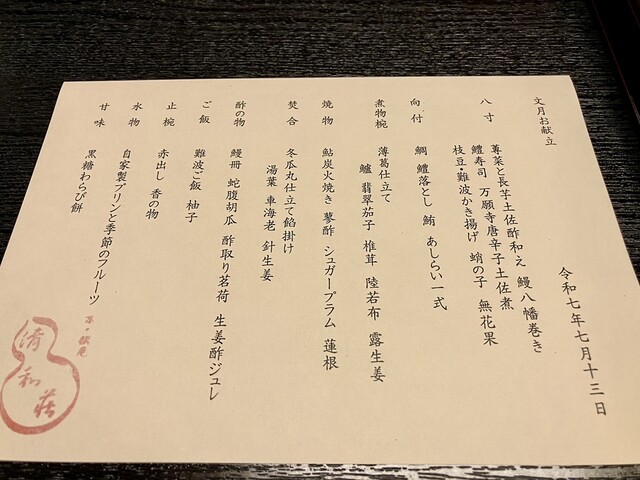 令和七年七月十三日
文月お献立
八寸
蓴菜と長芋土佐酢和え 鰻八幡巻き
鱧寿司 万願寺唐辛子土佐煮
枝豆難波かき揚げ 蛸の子 無花果
向付
鯛 鱧落とし 鮪 あしらい一式
煮物椀
薄葛仕立て
鱸 翡翠茄子 椎茸 陸若布 露生姜
焼物
鮎炭火焼き 蓼酢 シュガープラム 蓮根
焚合
冬瓜丸仕立て餡掛け
湯葉 車海老 針生姜
酢の物
鰻冊 蛇腹胡瓜 酢取り茗荷 生姜酢ジュレ
ご飯
難波ご飯 柚子
止椀
赤出し 香の物
水物
自家製プリンと季節のフルーツ
甘味
黒糖わらび餅
清和荘